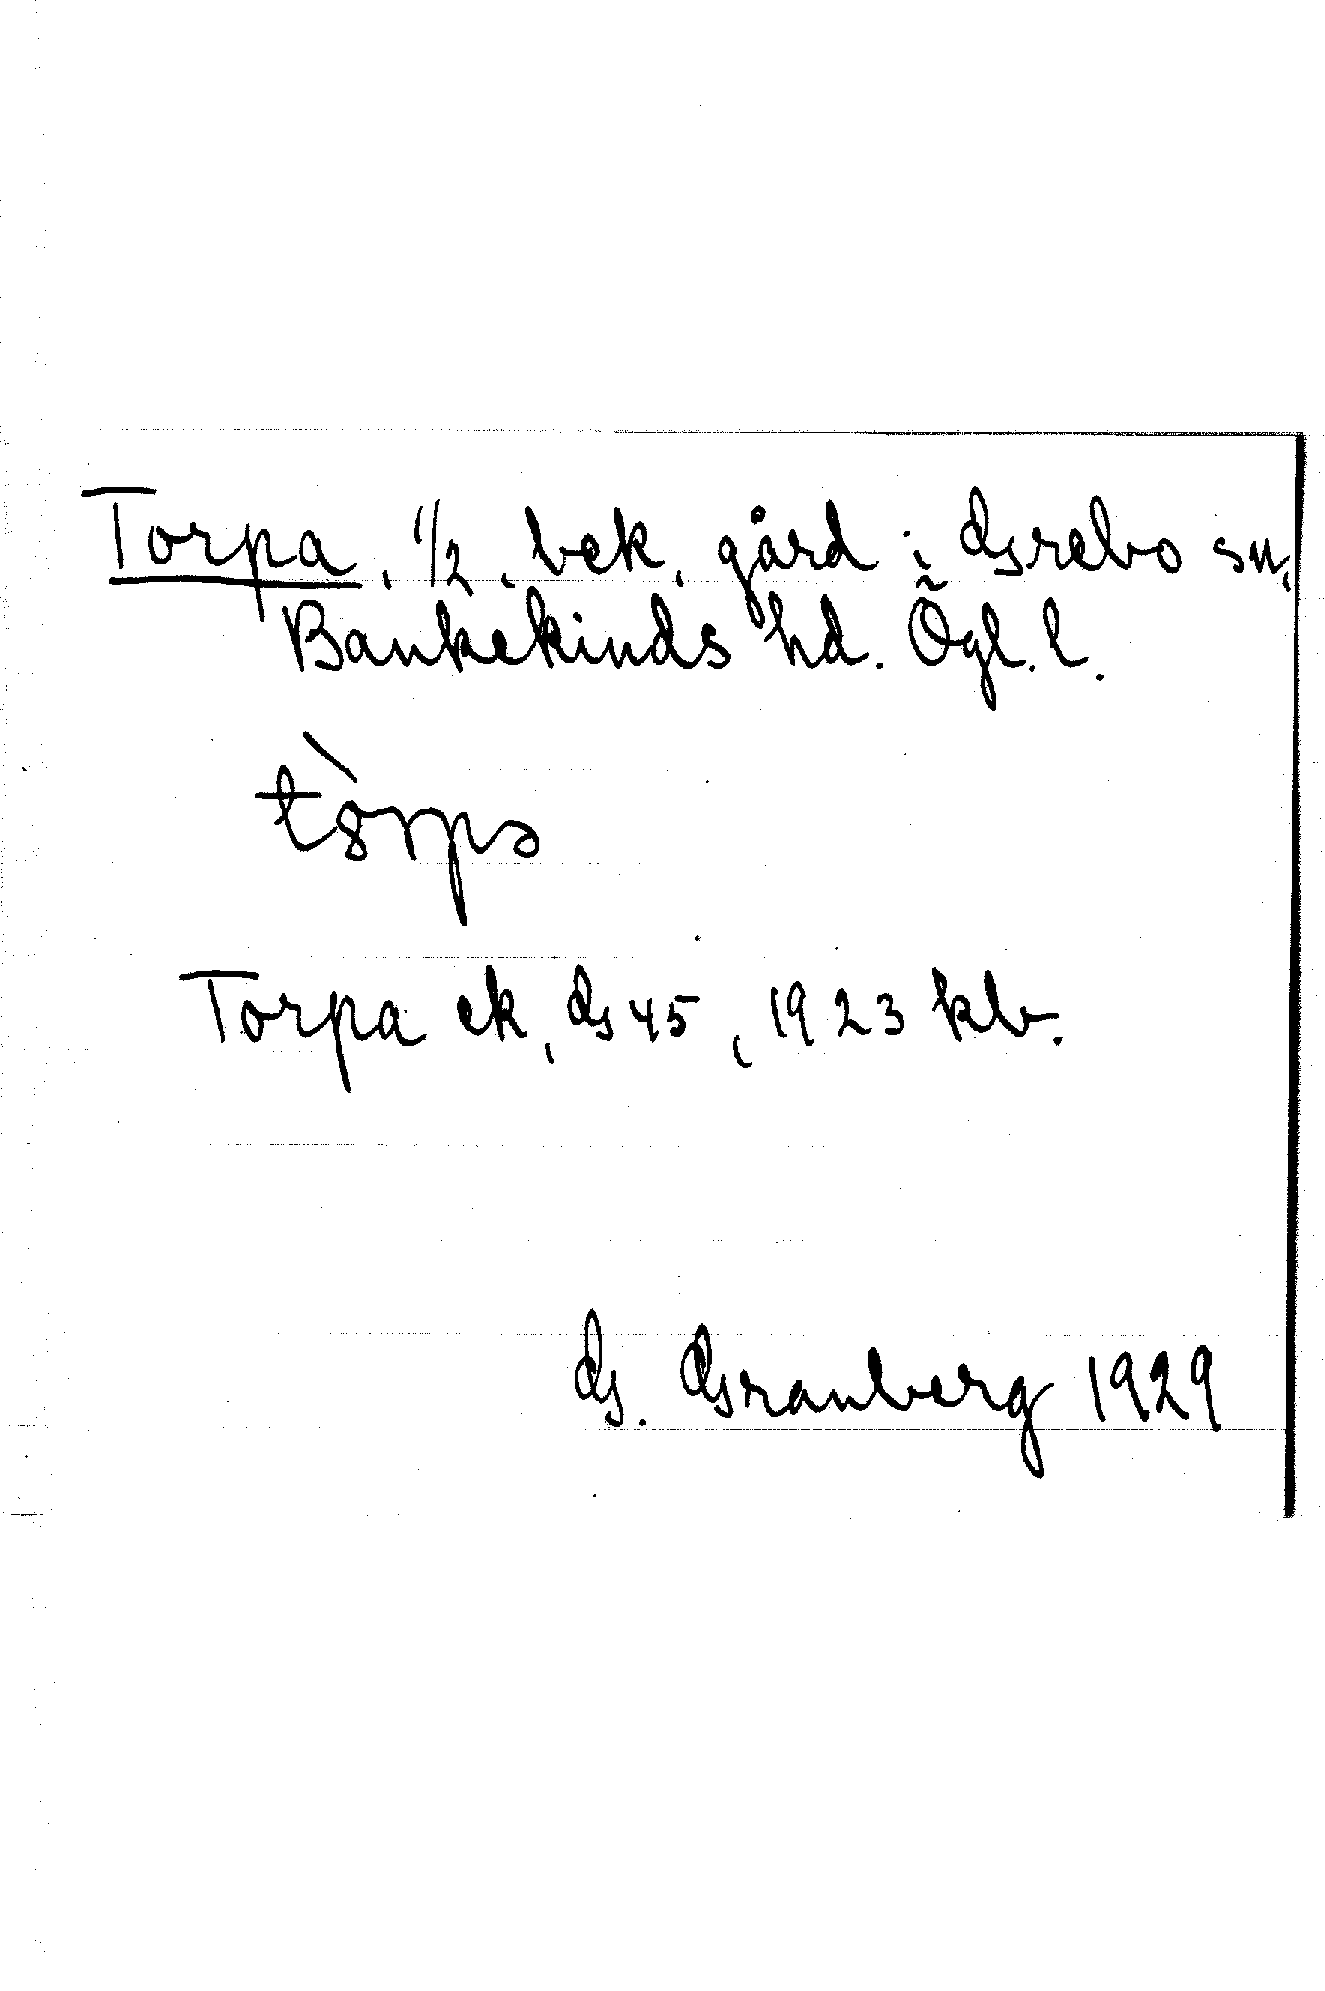 Torpa, 1/2, bek, gård i Grebo sn,
Bankekinds hd. Ögl. l.
tòrpa
Torpa ek, G 45, 1923 kb.
G. Granberg 1929